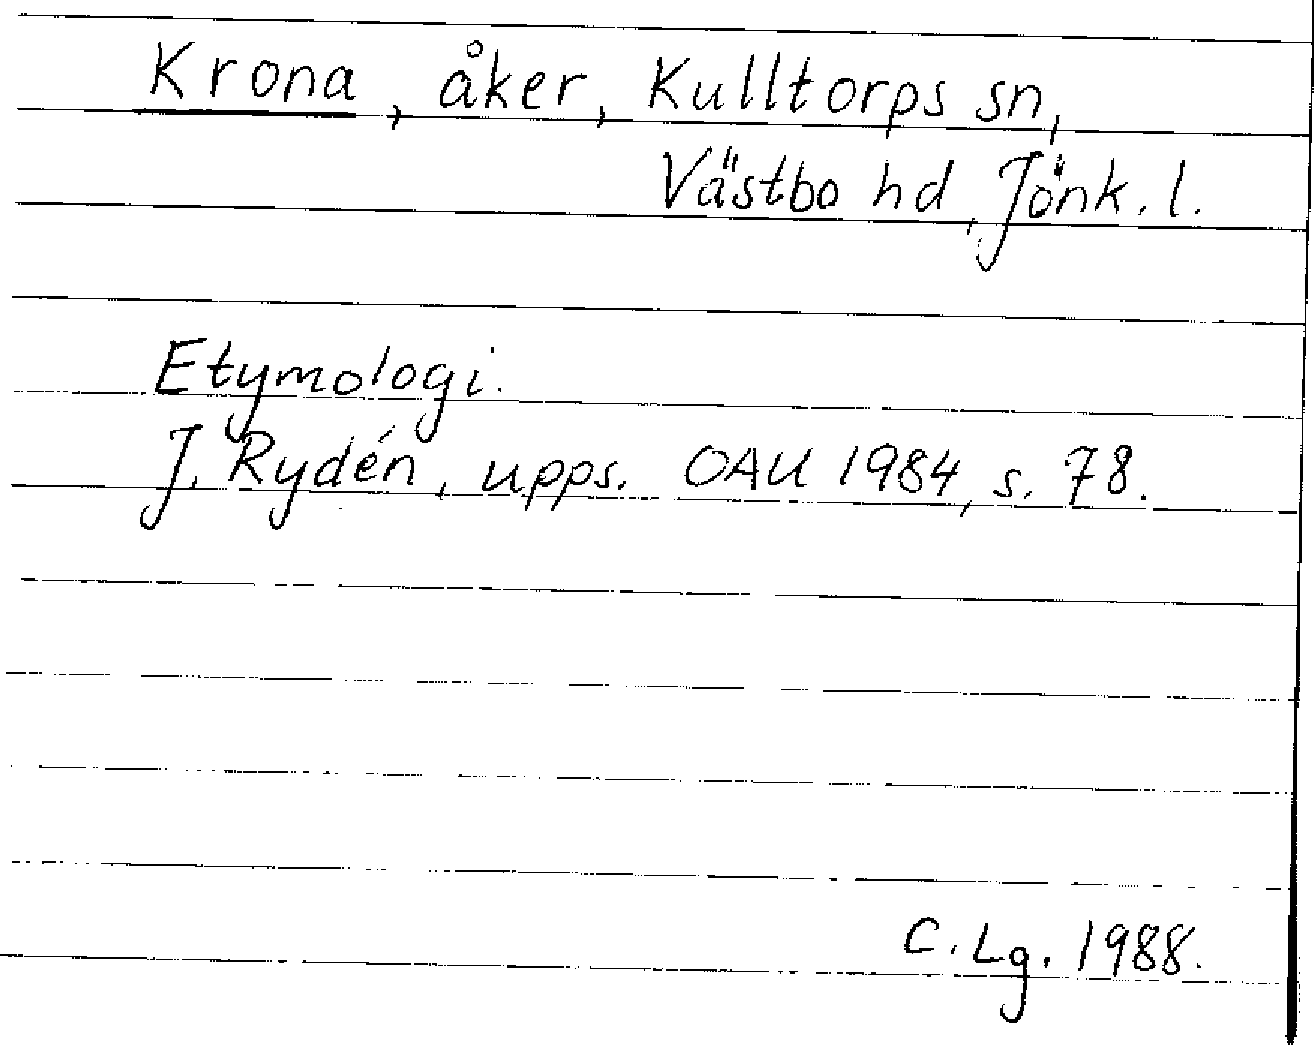 Krona, åker, Kulltorps sn,
Västbo hd, Jönk. l.
Etymologi.
J. Rydén, upps. OAU 1984, s. 78.
C. Lg. 1988.